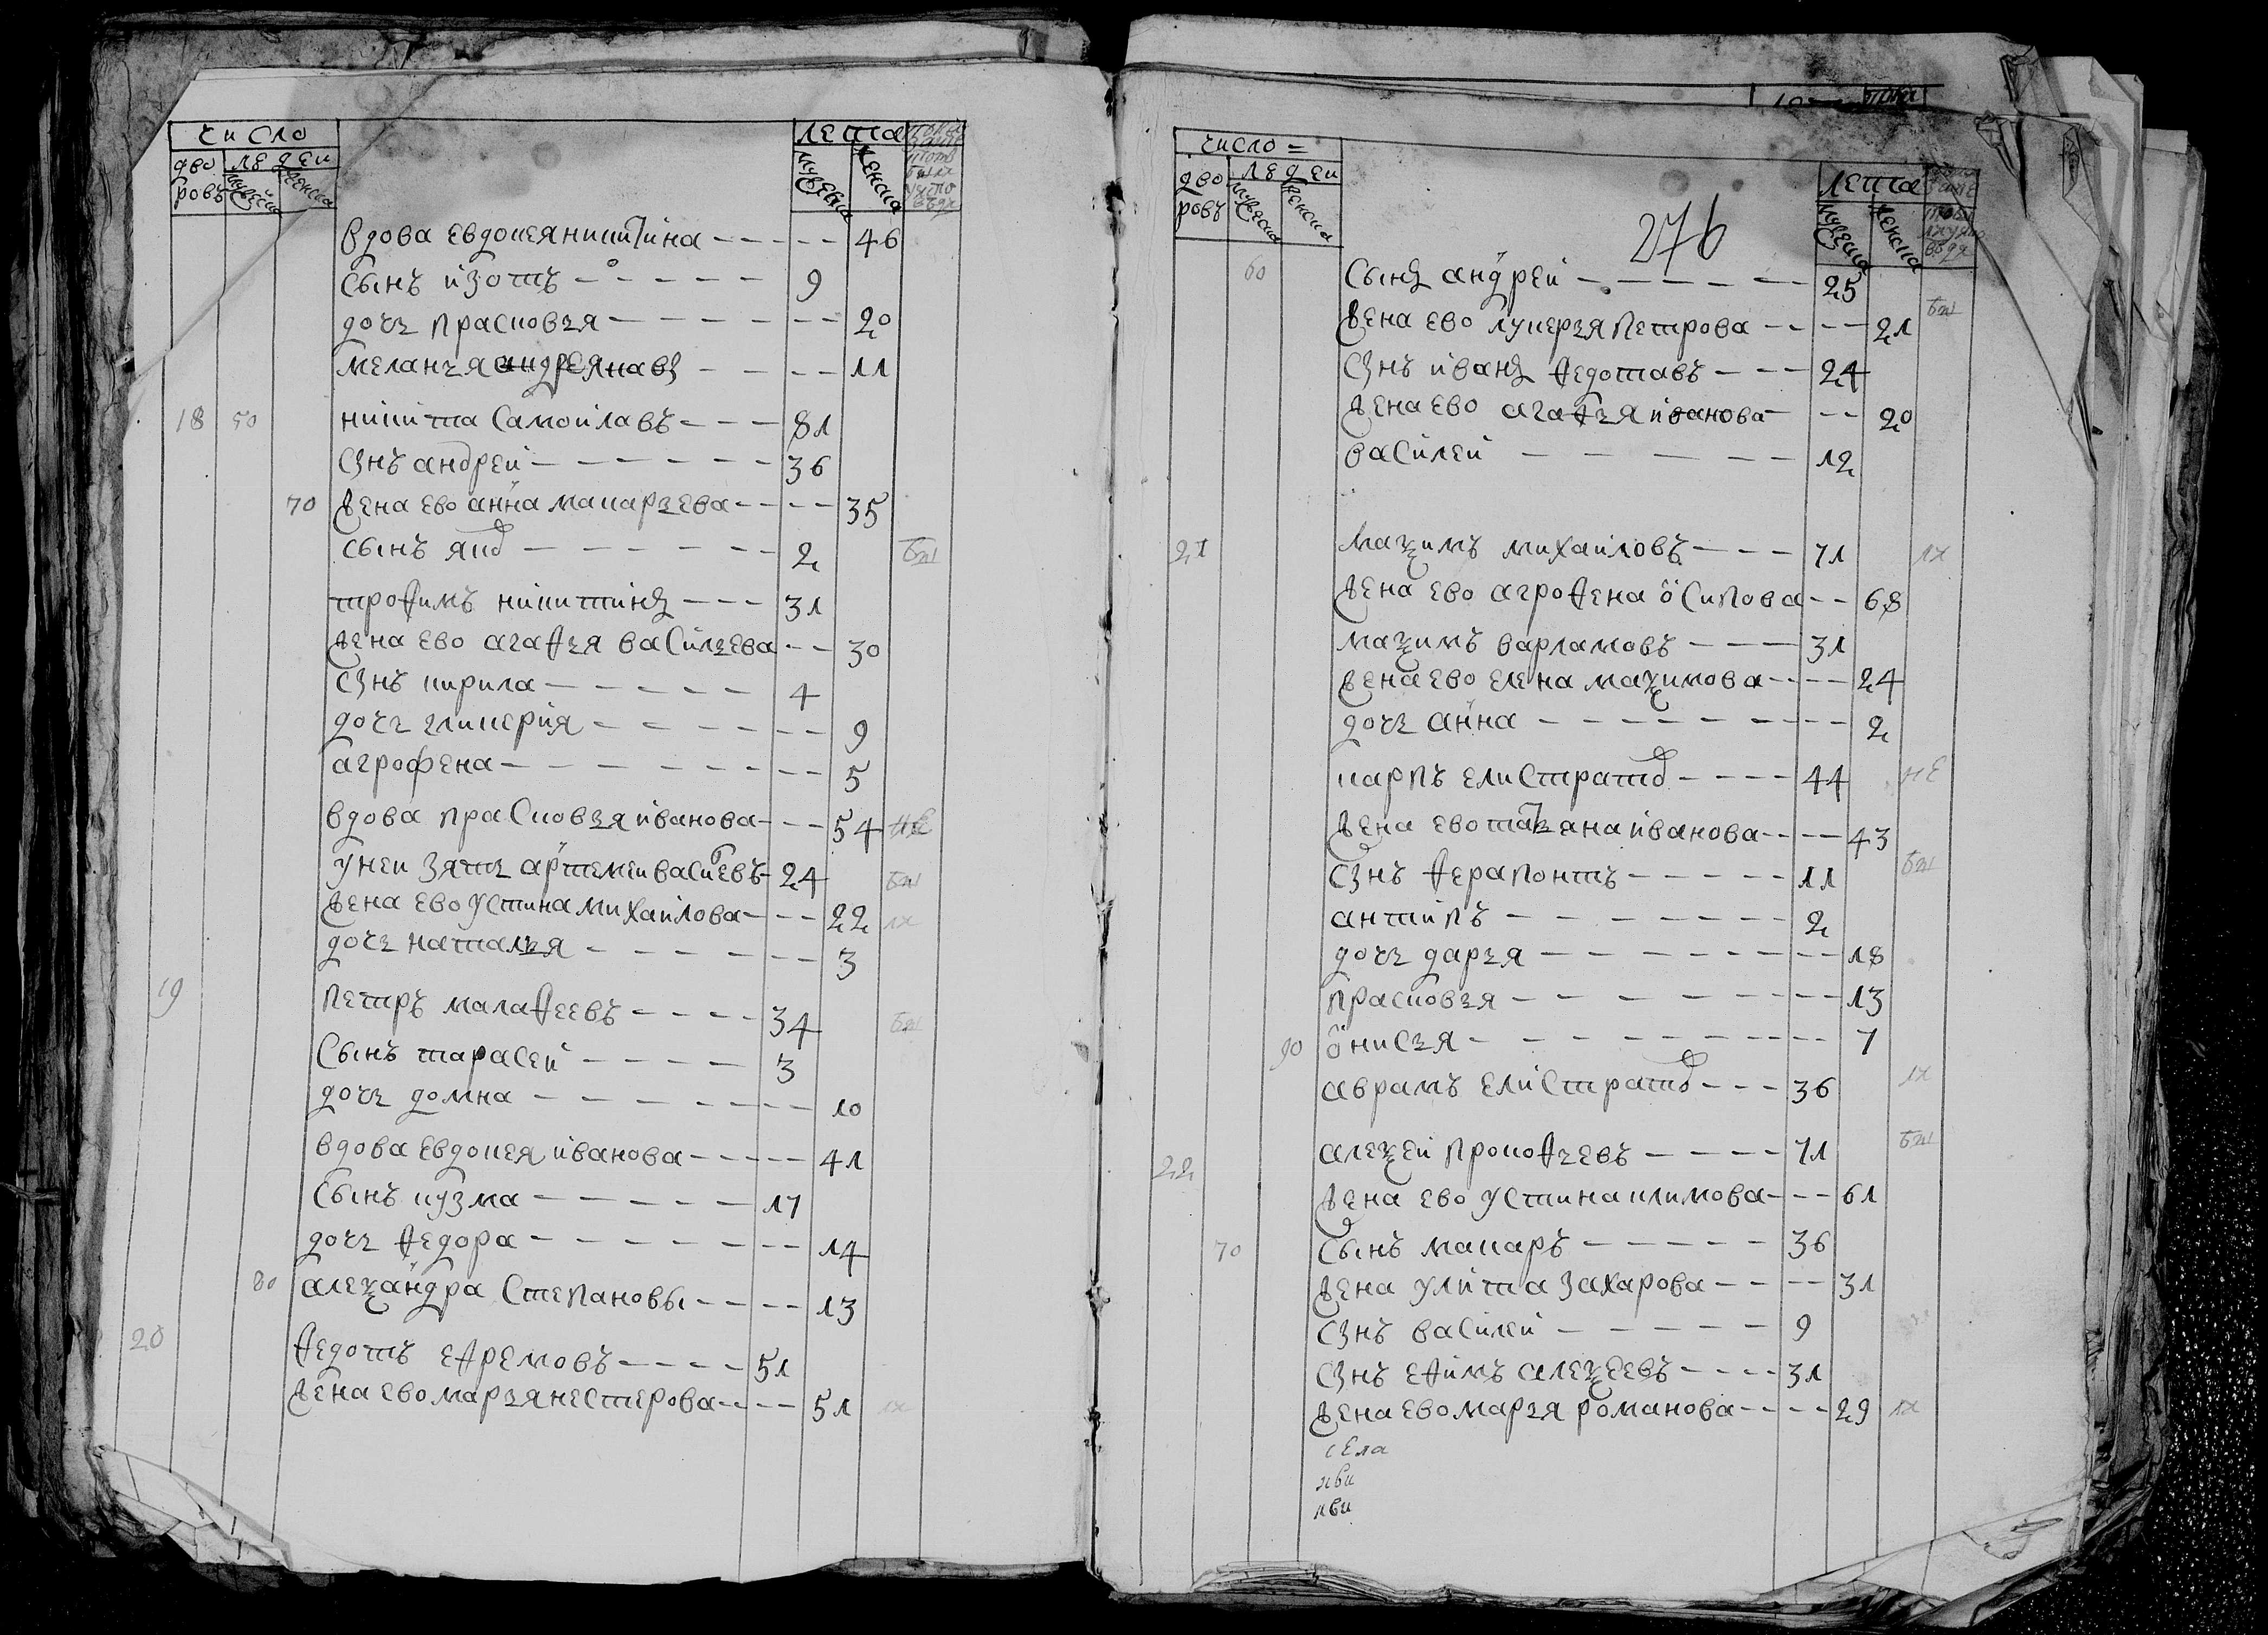 число
дво ровъ людеи мужеска женска
лета мужеска женска
вдова евдокея никитина - - - - - 46
сынъ изотъ - - - - - 9
дочь прасковья - - - - - - - 20
меланья андреянавы - - - - 11
18 50 никита самоилавъ - - - 81
сынъ андреи - - - - - - 36
70 жена ево анна макарьева - - - - 35
сынъ яков - - - - - - 2
трофимъ никитинъ - - - 31
жена ево агафья васильева - - 30
сынъ кирила - - - - - 4
дочь гликерия - - - - - - 9
агрофена - - - - - - - - 5
вдова прасковья иванова - - - 54 не
у неи зять артемеи василевъ - 24
жена ево устина михаилова - - - 22 их
дочь наталья - - - - - - - 3
19 петръ малафеевъ - - - - 34
сынъ тарасеи - - - - 3
дочь домна - - - - - - - 10
вдова евдокея иванова - - - - - 41
сынъ кузма - - - - - - 17
дочь федора - - - - - - - - 14
80 алеѯандра степановы - - - - 13
20 федотъ ефремовъ - - - - 51
жена ево марья нестерова - - - - 51 их
число =
дво ровъ людеи мужеска женска
276
лета мужеска женска
60 сынъ андреи - - - - - - 25
жена ево лукерья петрова - - - - 21
сынъ иванъ федотавъ - - - 24
жена ево агафья иванова - - - 20
василеи - - - - - - 12
21 маѯимъ михаиловъ - - - 71 их
жена ево агрофена осипова - - 68
маѯимъ варламовъ - - - 31
жена ево елена маѯимова - - - - 24
дочь анна - - - - - - - - - 2
карпъ елистратов - - - - 44 не
жена ево татьяна иванова - - - - 43
сынъ ферапонтъ - - - - - 11
антипъ - - - - - - - 2
дочь дарья - - - - - - - - 18
прасковья - - - - - - - - 13
90 онисья - - - - - - - - - 7
аврамъ елистратов - - - 36 их
22 алеѯеи прокофьевъ - - - - 71
жена ево устина климова - - - 61
70 сынъ макаръ - - - - - 36
жена улита захарова - - - - 31
сынъ василеи - - - - - 9
сынъ ефимъ алеѯеевъ - - - - 31
жена ево марья романова - - - - 29 их
села